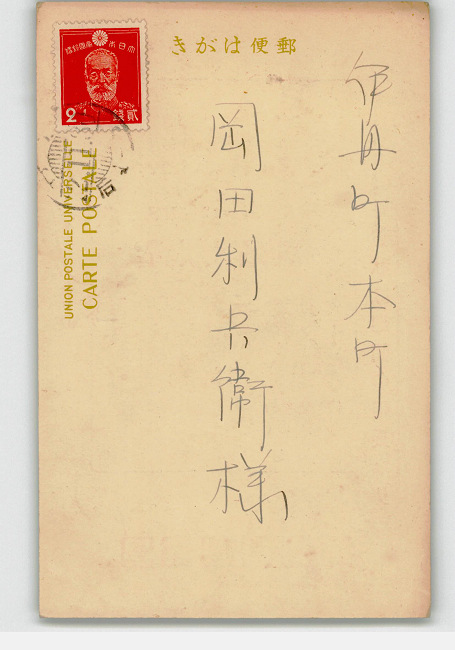 郵便はがき
伊丹町本町
岡田利兵衛様
大日本帝國郵便
2
貳錢
UNION POSTALE UNIVERSELLE
CARTE POSTALE